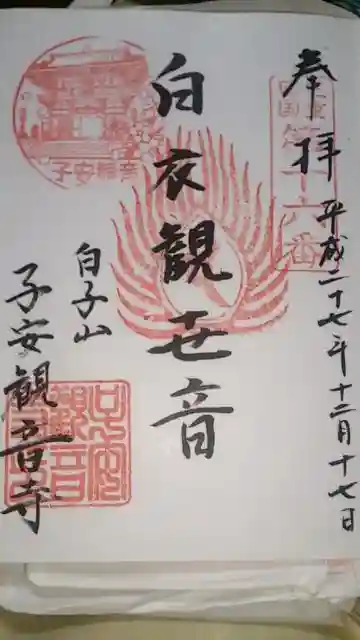 奉拝
平成二十七年十二月十七日
白衣観世音
白子山
子安観音寺
子安観音